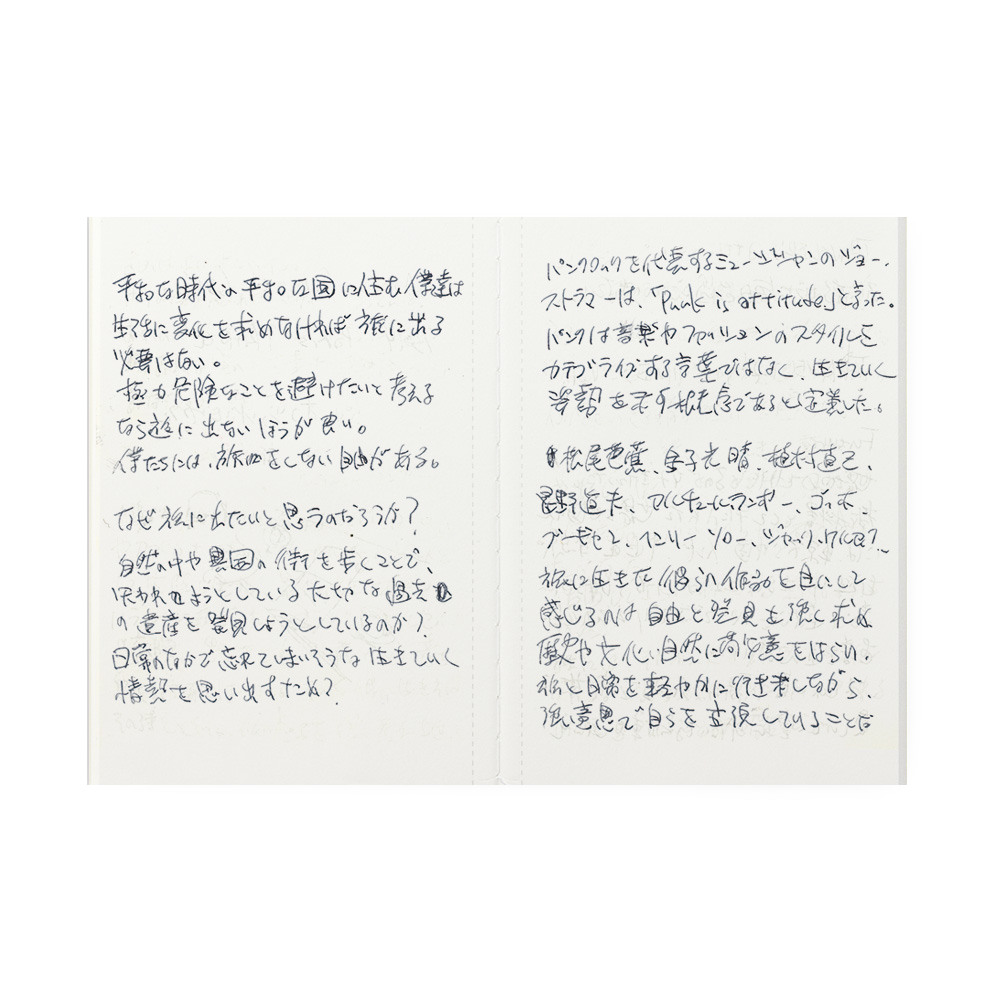 平和な時代の平和な国に住む僕達は
生活に変化を求めなければ旅に出る
必要はない。
極力危険なことを避けたいと考える
なら遊に出ないほうが良い。
僕たちには、旅をしない自由がある。
なぜ旅に出たいと思うのだろうか?
自然の中や異国の街を歩くことで、
失われようとしている大切な過去
の遺産を発見しようとしているのか?
日常のなかで忘れてしまいそうな生きていく
情熱を思い出すため?
パンクロックを代表するミュージシャンのジョー・
ストラマーは、「Punk is attitude」と言った。
パンクは音楽やファッションのスタイルを
カテゴライズする言葉ではなく、生きていく
姿勢を示す概念であると定義した。
松尾芭蕉、金子光晴、植村直己、
星野道夫、アルチュールランボー、ゴッホ、
ゴーギャン、ヘンリー ソロー、ジャック ケルアック…
旅に生きた彼らの作品を目にして
感じるのは自由と発見を強く求め
歴史や文化、自然に敬意をはらい、
旅と日常を軽やかに行き来しながら、
強い意思で自らを表現していることだ